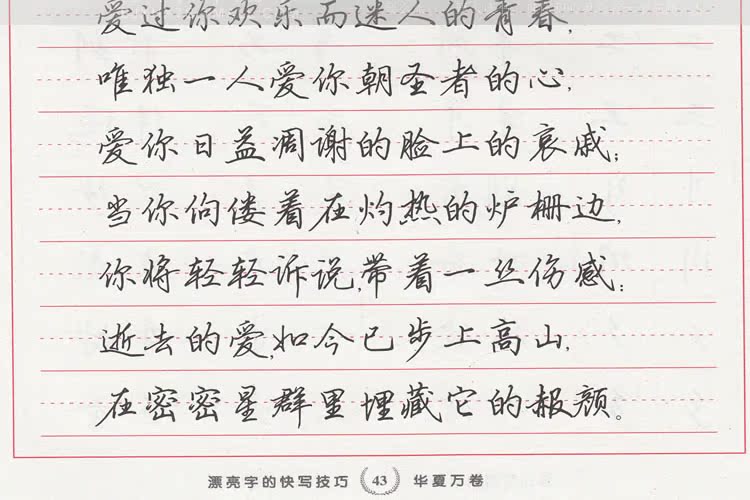 爱过你欢乐而迷人的青春，
唯独一人爱你朝圣者的心，
爱你日益凋谢的脸上的哀戚；
当你佝偻着在灼热的炉栅边，
你将轻轻诉说，带着一丝伤感：
逝去的爱，如今已步上高山，
在密密星群里埋藏它的赧颜。
漂亮字的快写技巧 43 华夏万卷